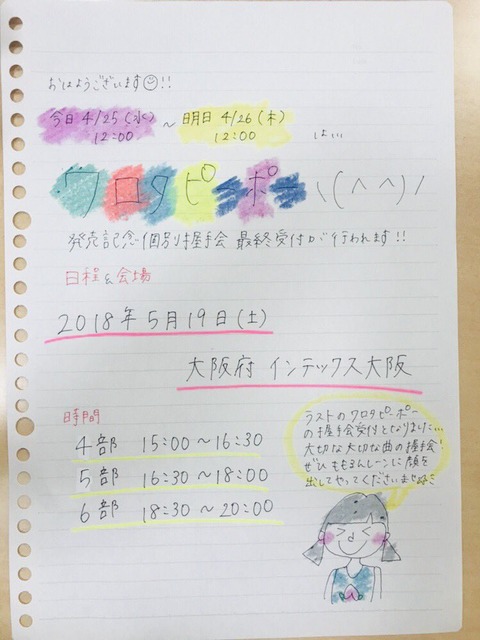 おはようございます☺!!
今日 4/25(水) ～ 明日 4/26(木)
12:00 12:00 は…
ワロタピーポー \(^^)/
発売記念個別握手会 最終受付が行われます!!
日程&会場
2018年5月19日(土)
大阪府 インテックス大阪
時間
4部 15:00～16:30
5部 16:30～18:00
6部 18:30～20:00
ラストのワロタピーポー
の握手会受付となりました…
大切な大切な曲の握手会!
ぜひ ももるんレーンに顔を
出してやってくださいませぬ